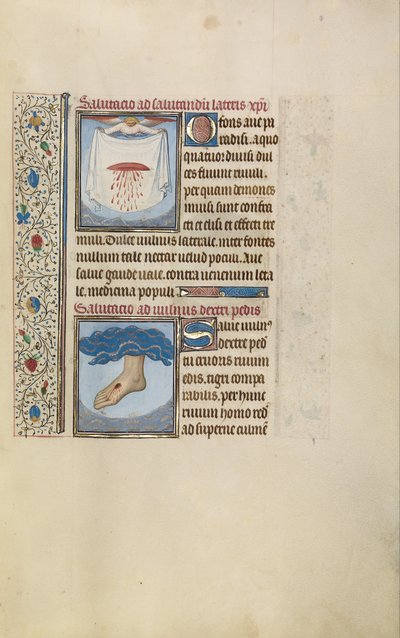 Salutacio ad salutandū lateris xpi
O fons aue pa
radisi. a quo
quatuor diuisi dul
ces fluunt riuuli.
per quam demones
inuisi sunt contra
cti et elisi et effecti tre
muli. Dulce uulnus laterale. inter fontes
nullum tale nectar uel ud pociu. Aue
salue gaude uale. contra uenenum leta
le. medicina populi
Salutacio ad uulnus dextri pedis
Salue uulnꝰ
dextre ped
tu cruoris riuum
edis. tigri compa
rabilis. per hunc
riuum homo red
ad superne culmē